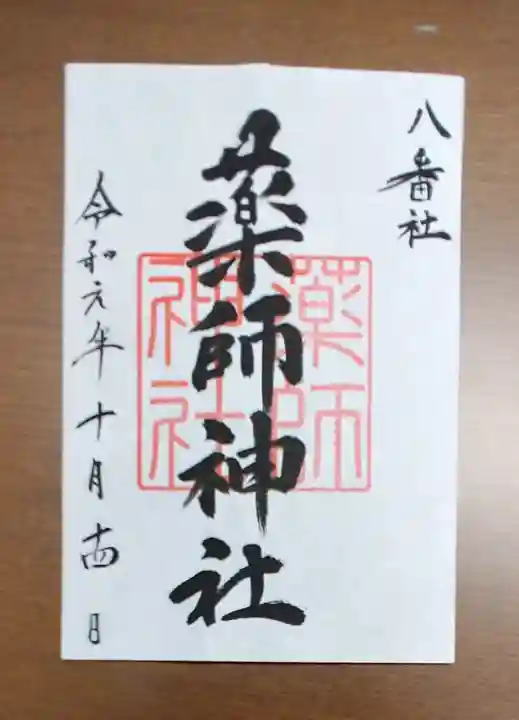 八番社
薬師神社
薬師
神社
令和元年十月十四日